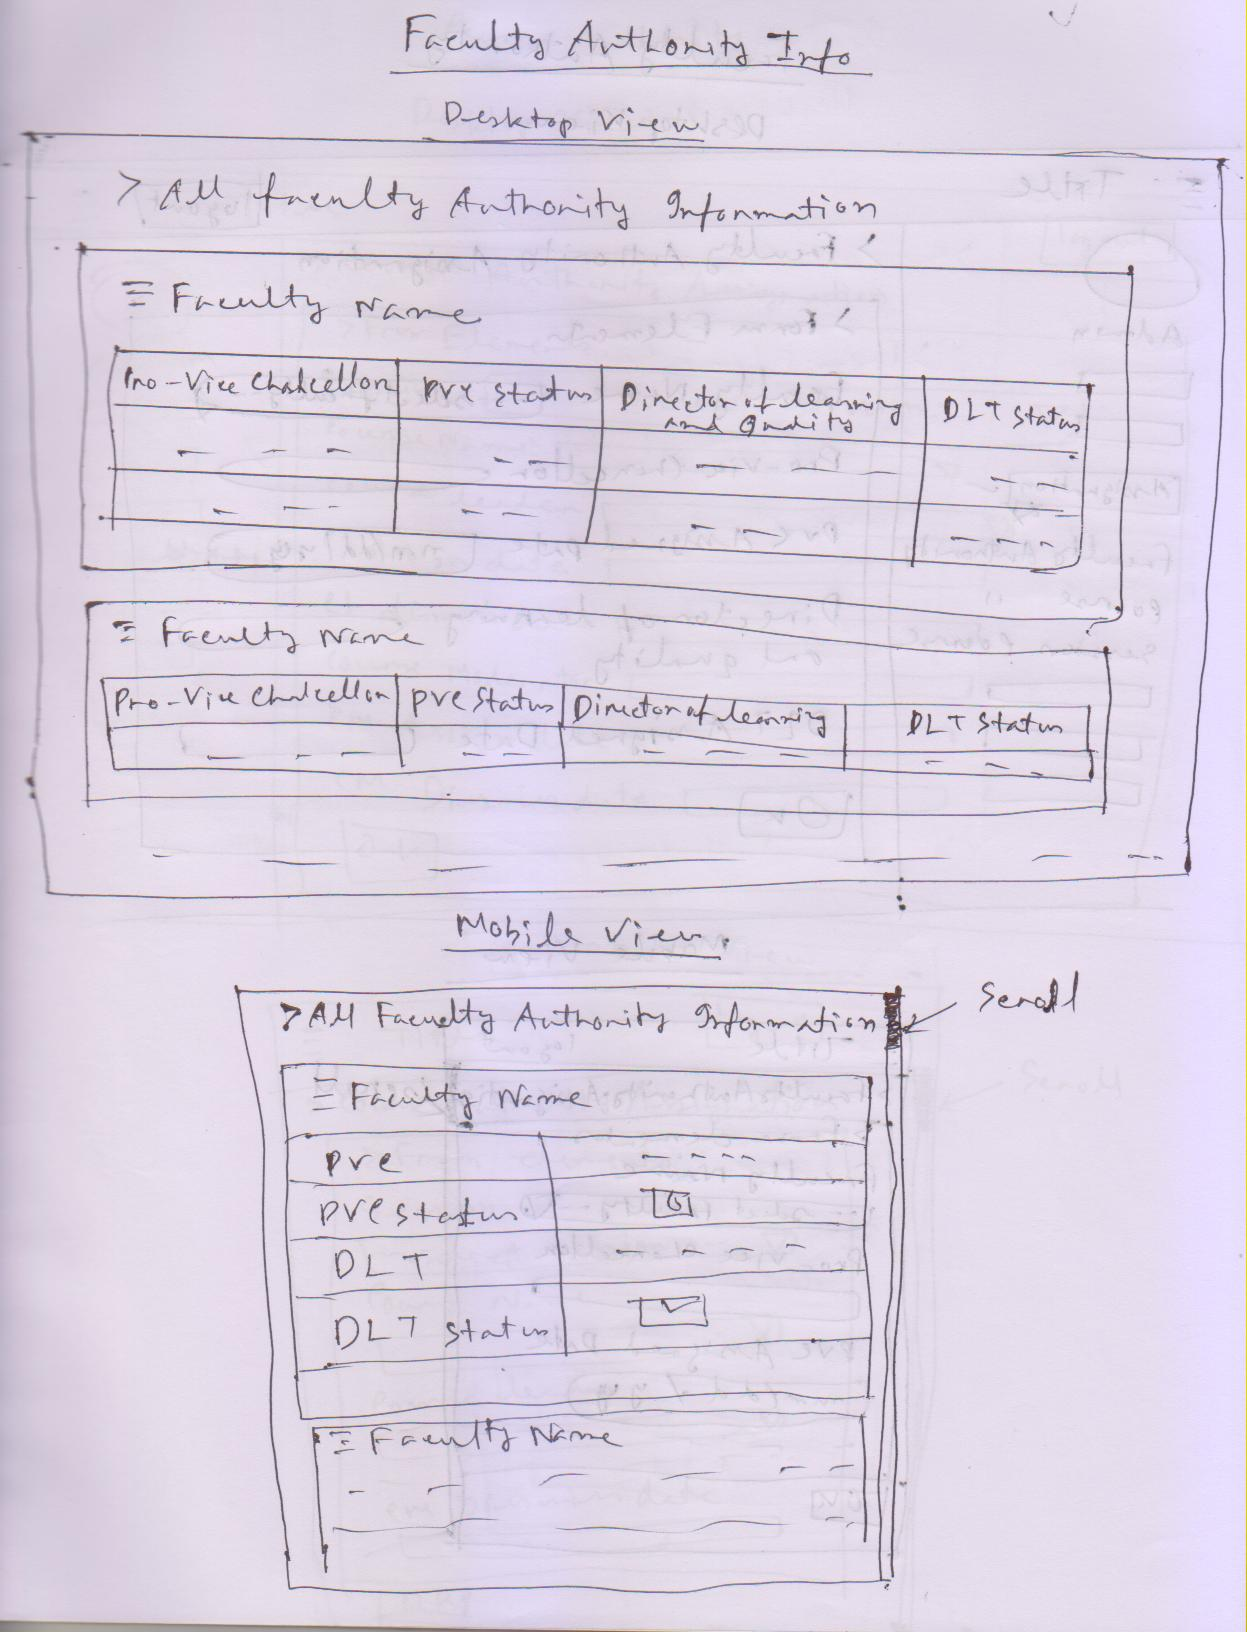 Faculty Authority Info
Desktop View
> All faculty Authority Information
Faculty Name
Pro-Vice Chancellor PVC Status Director of learning and Quality DLT Status
Faculty Name
Pro-Vice Chancellor PVC Status Director of learning DLT Status
Mobile View.
> All Faculty Authority Information
Scroll
Faculty Name
PVC
PVC Status
DLT
DLT Status
Faculty Name